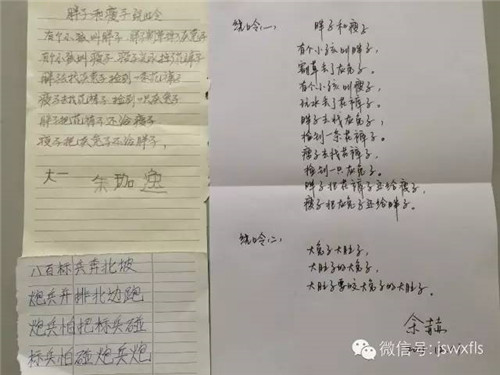 胖子和瘦子绕口令
有个小孩叫胖子
有个小孩叫瘦子
胖子去找灰兔子 捡到一条花裤子
瘦子去找花裤子 捡到一只灰兔子
胖子把花裤子还给瘦子
瘦子把灰兔子还给胖子。
大一
八百标兵奔北坡
炮兵并排北边跑
炮兵怕把标兵碰
标兵怕碰炮兵炮
绕口令(一)
胖子和瘦子
有个小孩叫胖子,
割草丢了灰兔子。
有个小孩叫瘦子,
玩水丢了花裤子。
胖子去找灰兔子,
捡到一条花裤子。
瘦子去找花裤子,
捡到一只灰兔子。
胖子把花裤子还给瘦子,
瘦子把灰兔子还给胖子。
绕口令(二)
大兔子大肚子,
大肚子的大兔子,
大肚子要咬大兔子的大肚子。
微信号: jswxfls